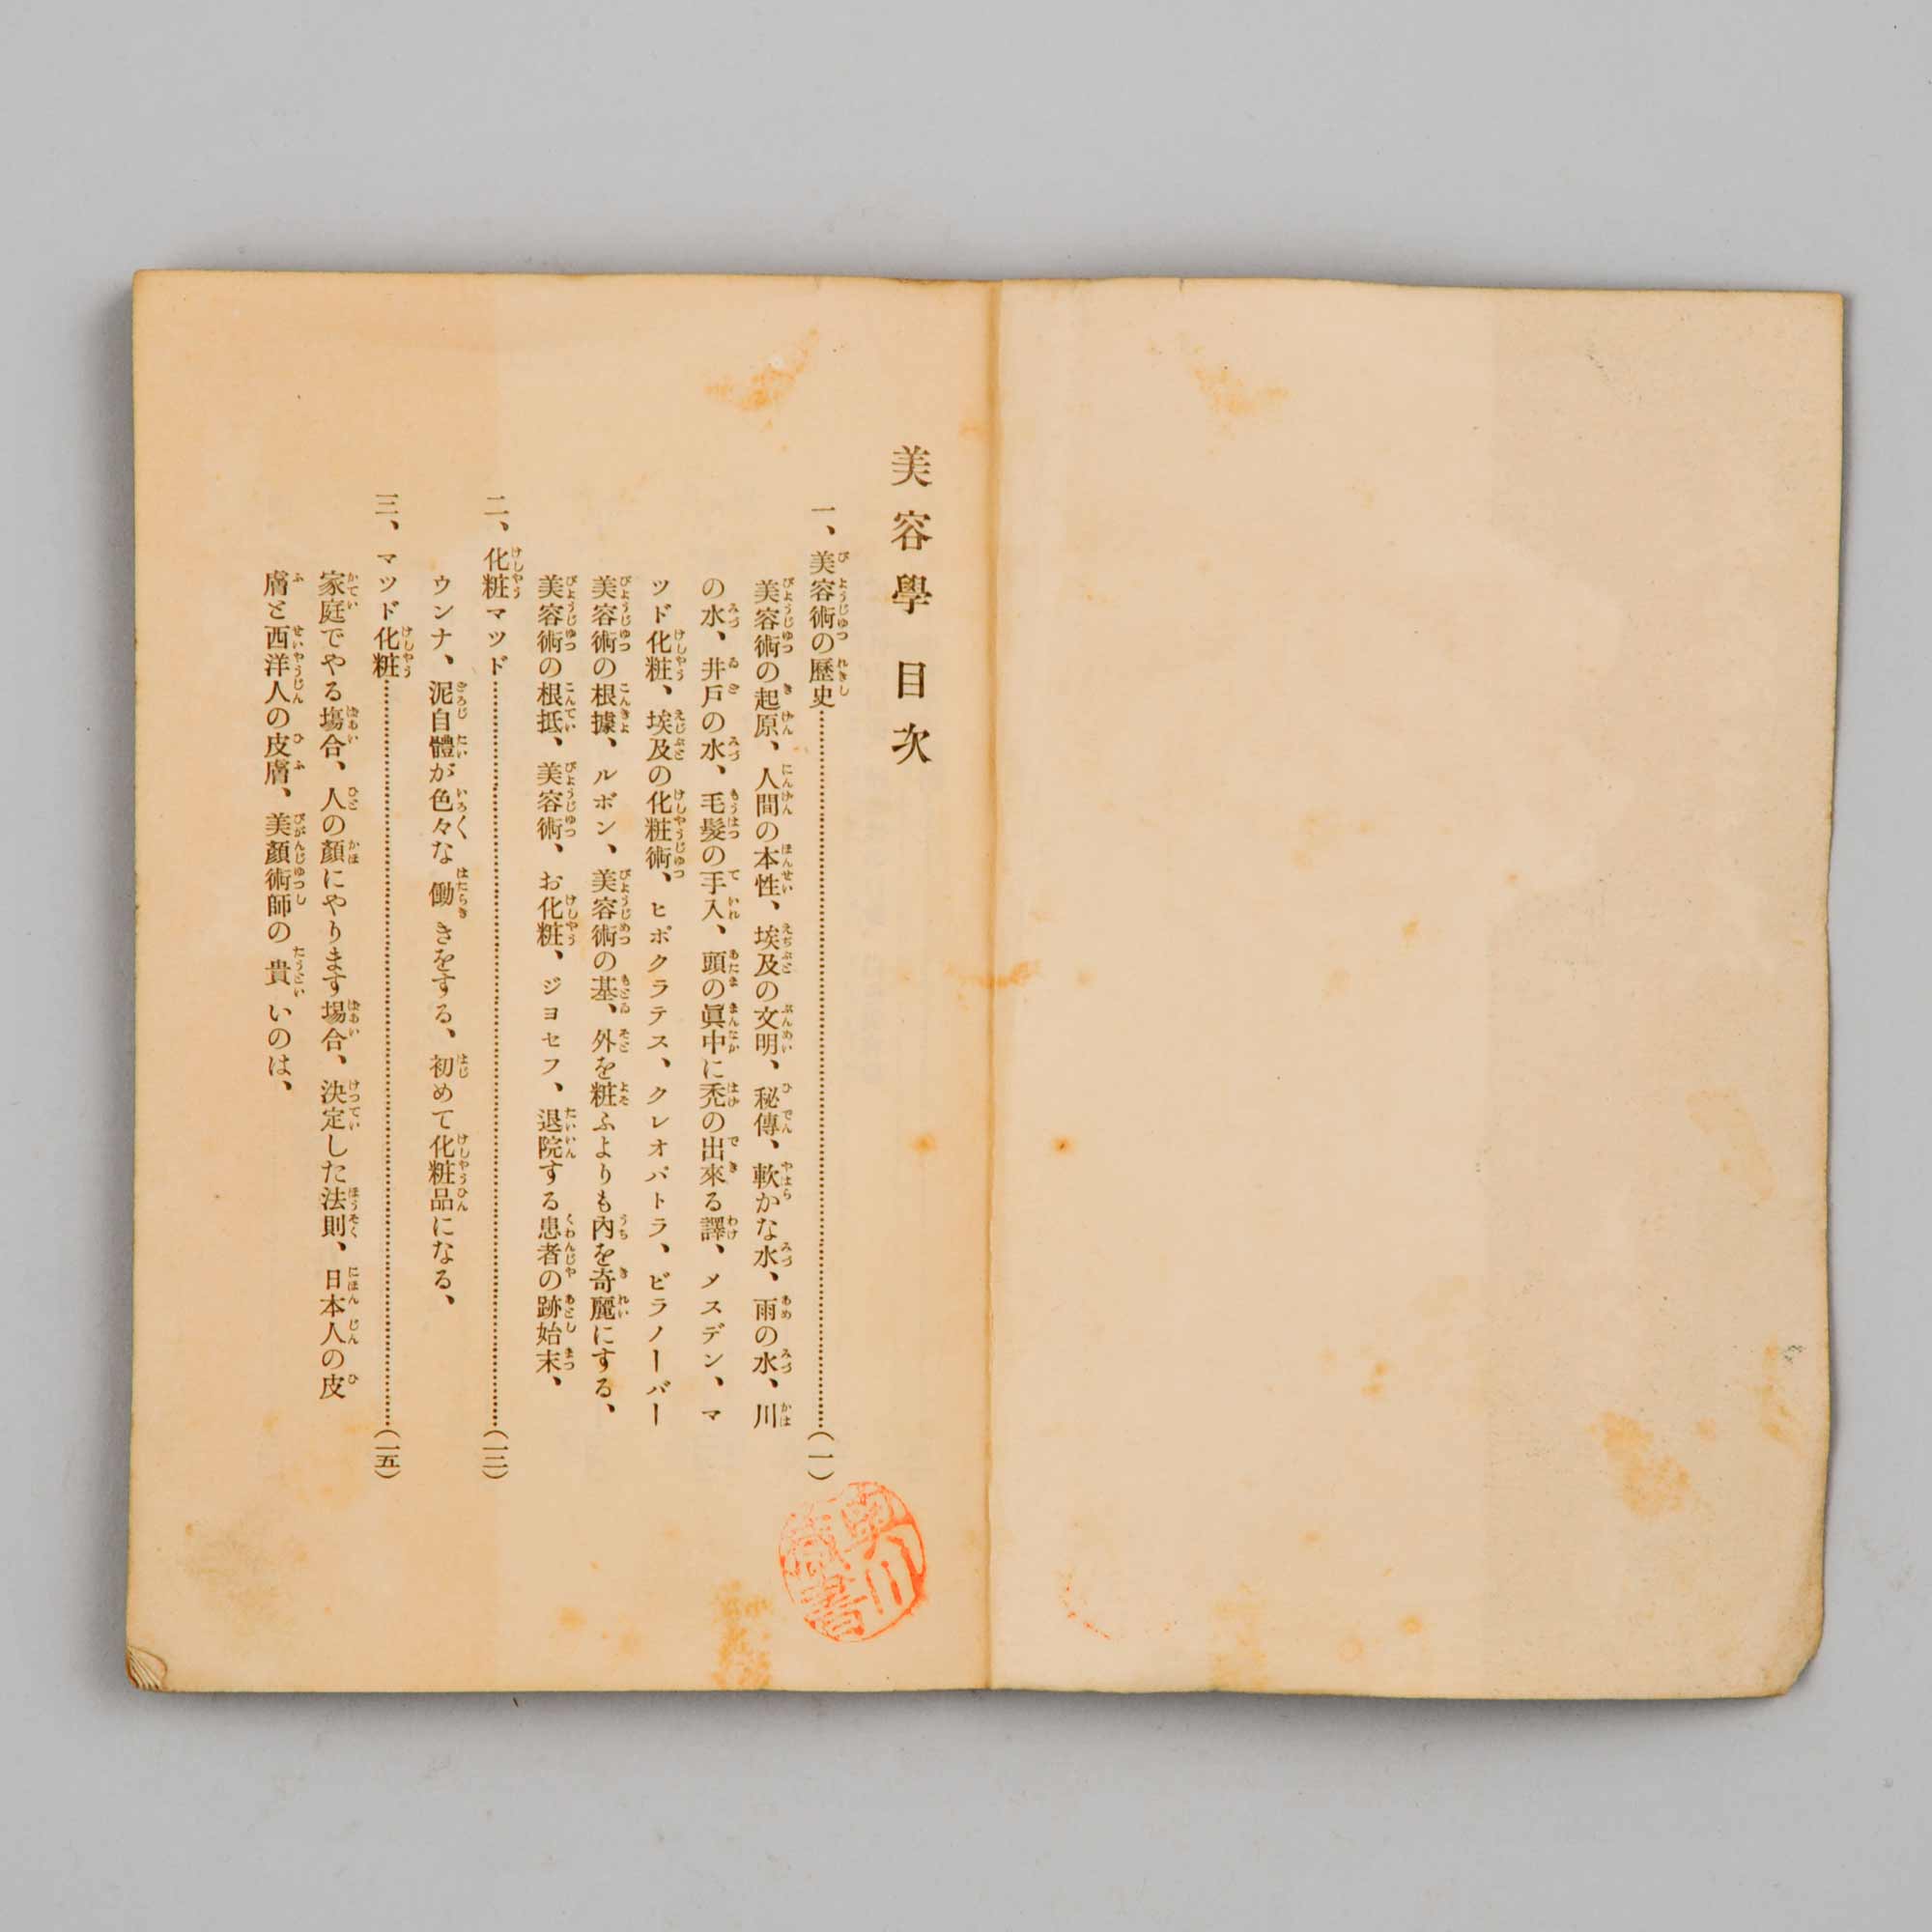 美容學 目次
一、美容術の歷史……………………(一)
美容術の起原、人間の本性、埃及の文明、秘傳、軟かな水、雨の水、川
の水、井戶の水、毛髮の手入、頭の眞中に禿の出來る譯、メスデン、マ
ツド化粧、埃及の化粧術、ヒポクラテス、クレオパトラ、ビラノーバー
美容術の根據、ルボン、美容術の基、外を粧ふよりも內を奇麗にする、
美容術の根抵、美容術、お化粧、ジヨセフ、退院する患者の跡始末、
二、化粧マツド……………………(一三)
ウンナ、泥自體が色々な働きをする、初めて化粧品になる、
三、マツド化粧……………………(一五)
家庭でやる塲合、人の顏にやります場合、決定した法則、日本人の皮
膚と西洋人の皮膚、美顏術師の貴いのは、